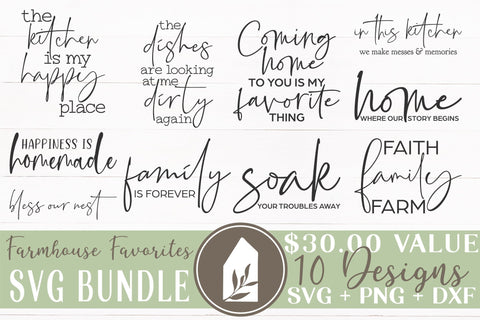 the
kitchen
is my
happy
place
the
dishes
are looking
at me
dirty
again
Coming
home
TO YOU IS MY
favorite
THING
in this kitchen
we make messes & memories
home
WHERE OUR STORY BEGINS
HAPPINESS IS
homemade
bless our nest
family
IS FOREVER
soak
YOUR TROUBLES AWAY
FAITH
family
FARM
Farmhouse Favorites
SVG BUNDLE
$30.00 VALUE
10 Designs
SVG + PNG + DXF